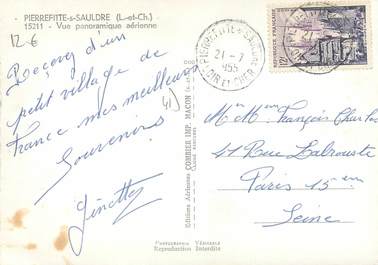 PIERREFITTE-s-SAULDRE (L.-et-Ch.)
15211 - Vue panoramique aérienne
12 €
Recevez d'un
petit village de
France mes meilleurs
Souvenirs
Ginette
41)
Editions Aériennes COMBIER IMP. MACON
PIERREFITTE-S-SAULDRE
21-7
1955
LOIR ET CHER
REPUBLIQUE FRANÇAISE
12f
M. Mme François Charles
41 Rue Labrouste
Paris 15em
Seine
Photographie Véritable
Reproduction Interdite